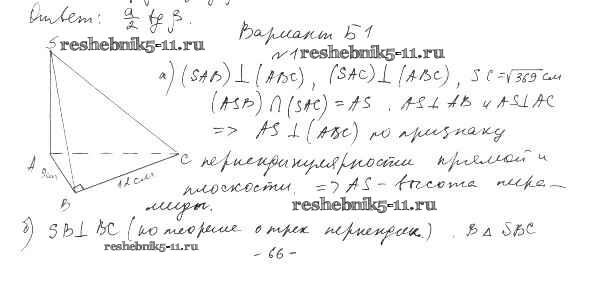 Ответ: a/2 tg β.
Вариант Б1
S reshebnik5-11.ru
№1 reshebnik5-11.ru
а) (SAB) ⊥ (ABC), (SAC) ⊥ (ABC), SC = √369 см
(ASB) ∩ (SAC) = AS. AS ⊥ AB и AS ⊥ AC
=> AS ⊥ (ABC) по признаку
A C перпендикулярности прямой и
9см 12см плоскости. => AS - высота пира-
B миды. reshebnik5-11.ru
б) SB ⊥ BC (по теореме о трех перпендик.). В Δ SBC
reshebnik5-11.ru
- 66 -